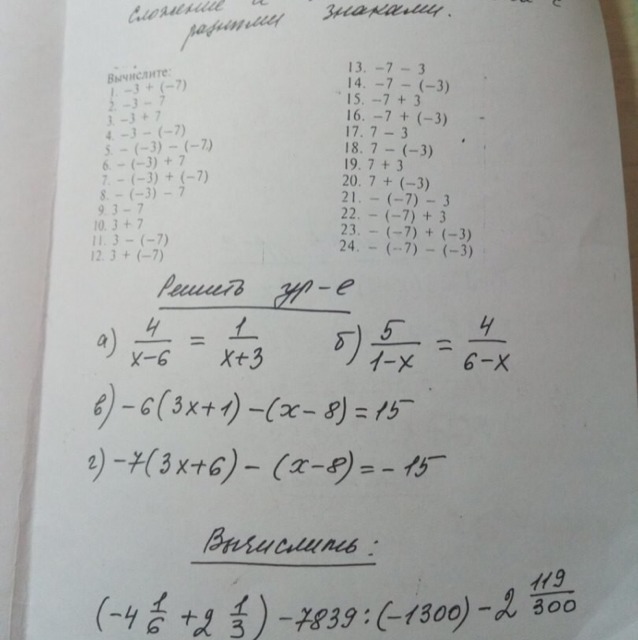 сложение и
разными знаками.
Вычислите:
1. −3 + (−7)
2. −3 − 7
3. −3 + 7
4. −3 − (−7)
5. − (−3) − (−7)
6. − (−3) + 7
7. − (−3) + (−7)
8. − (−3) − 7
9. 3 − 7
10. 3 + 7
11. 3 − (−7)
12. 3 + (−7)
13. −7 − 3
14. −7 − (−3)
15. −7 + 3
16. −7 + (−3)
17. 7 − 3
18. 7 − (−3)
19. 7 + 3
20. 7 + (−3)
21. − (−7) − 3
22. − (−7) + 3
23. − (−7) + (−3)
24. − (−7) − (−3)
Решить ур-е
а) 4/(x−6) = 1/(x+3) б) 5/(1−x) = 4/(6−x)
в) −6(3x+1)−(x−8)=15
г) −7(3x+6)−(x−8)=−15
Вычислить:
(−4 1/6 + 2 1/3) −7839:(−1300) −2 119/300